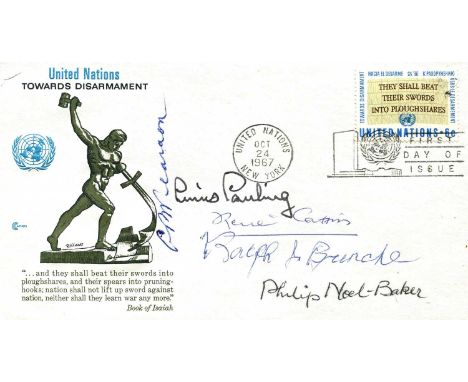 United Nations
TOWARDS DISARMAMENT
"...and they shall beat their swords into
ploughshares, and their spears into pruning-
hooks; nation shall not lift up sword against
nation, neither shall they learn war any more."
Book of Isaiah
UNITED NATIONS
OCT
24
1967
NEW YORK
TOWARDS DISARMAMENT
THEY SHALL BEAT
THEIR SWORDS
INTO PLOUGHSHARES
UNITED NATIONS·6c
FIRST
DAY OF
ISSUE
Linus Pauling
René Cassin
Ralph J Bunche
Philip Noel-Baker